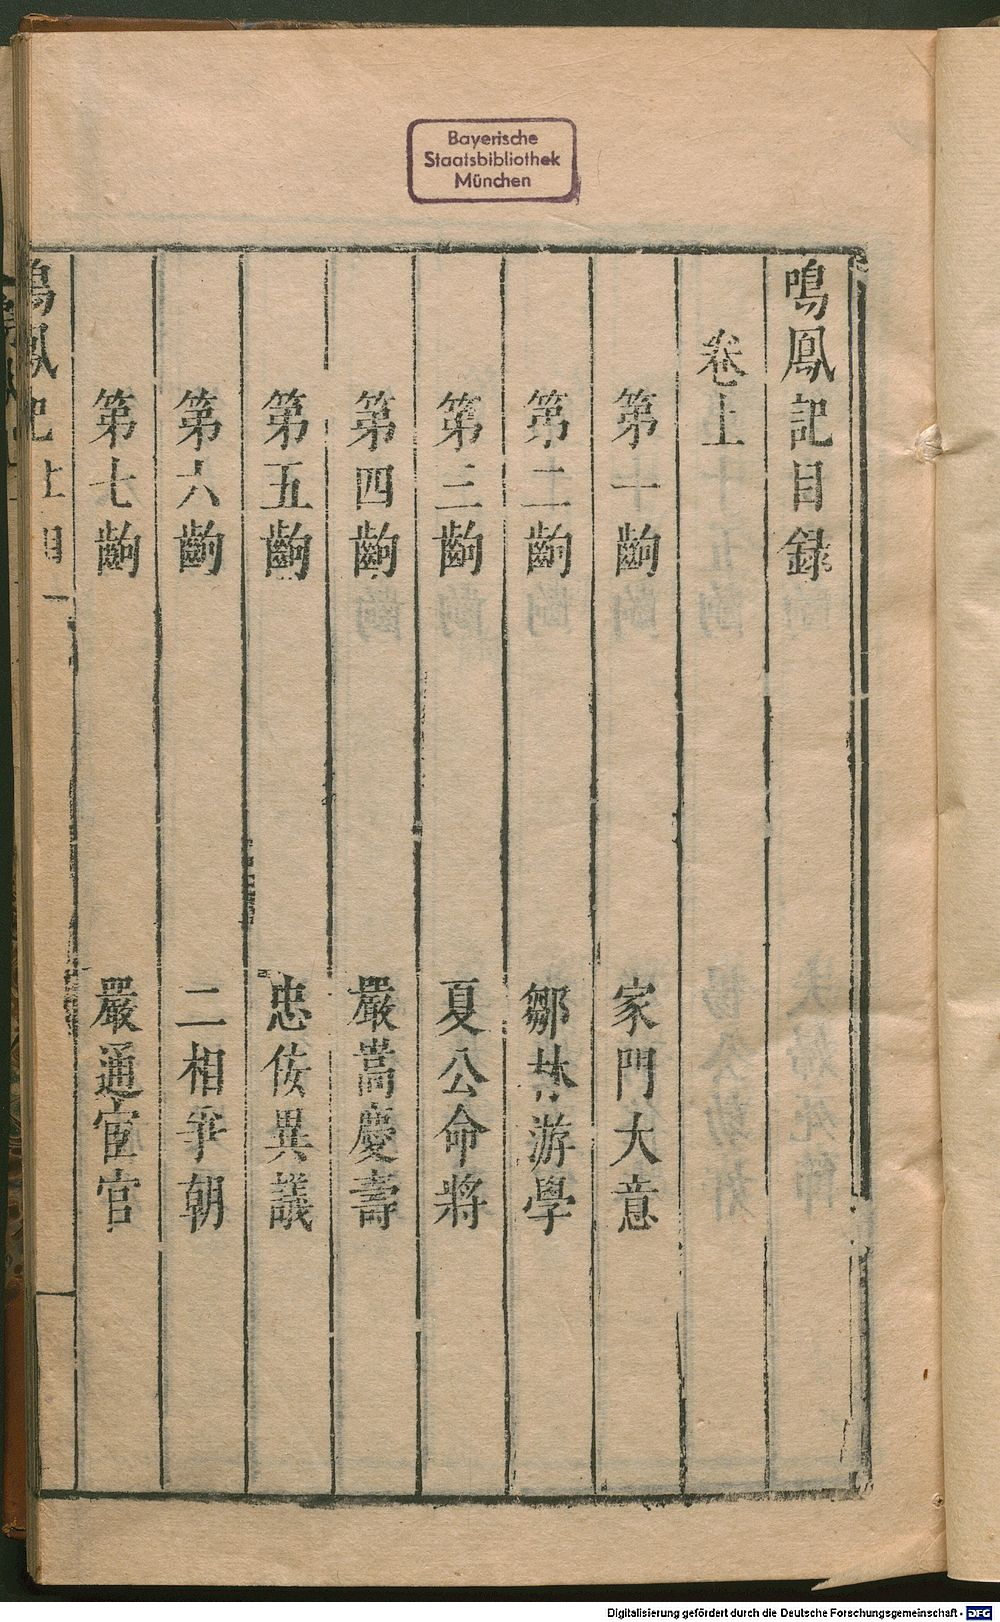 Bayerische
Staatsbibliothek
München
鳴鳳記目錄
卷上
第一齣 家門大意
第二齣 鄒林游學
第三齣 夏公命將
第四齣 嚴嵩慶壽
第五齣 忠佞異議
第六齣 二相爭朝
第七齣 嚴通宦官
鳴鳳記 上目 一
Digitalisierung gefördert durch die Deutsche Forschungsgemeinschaft - DFG